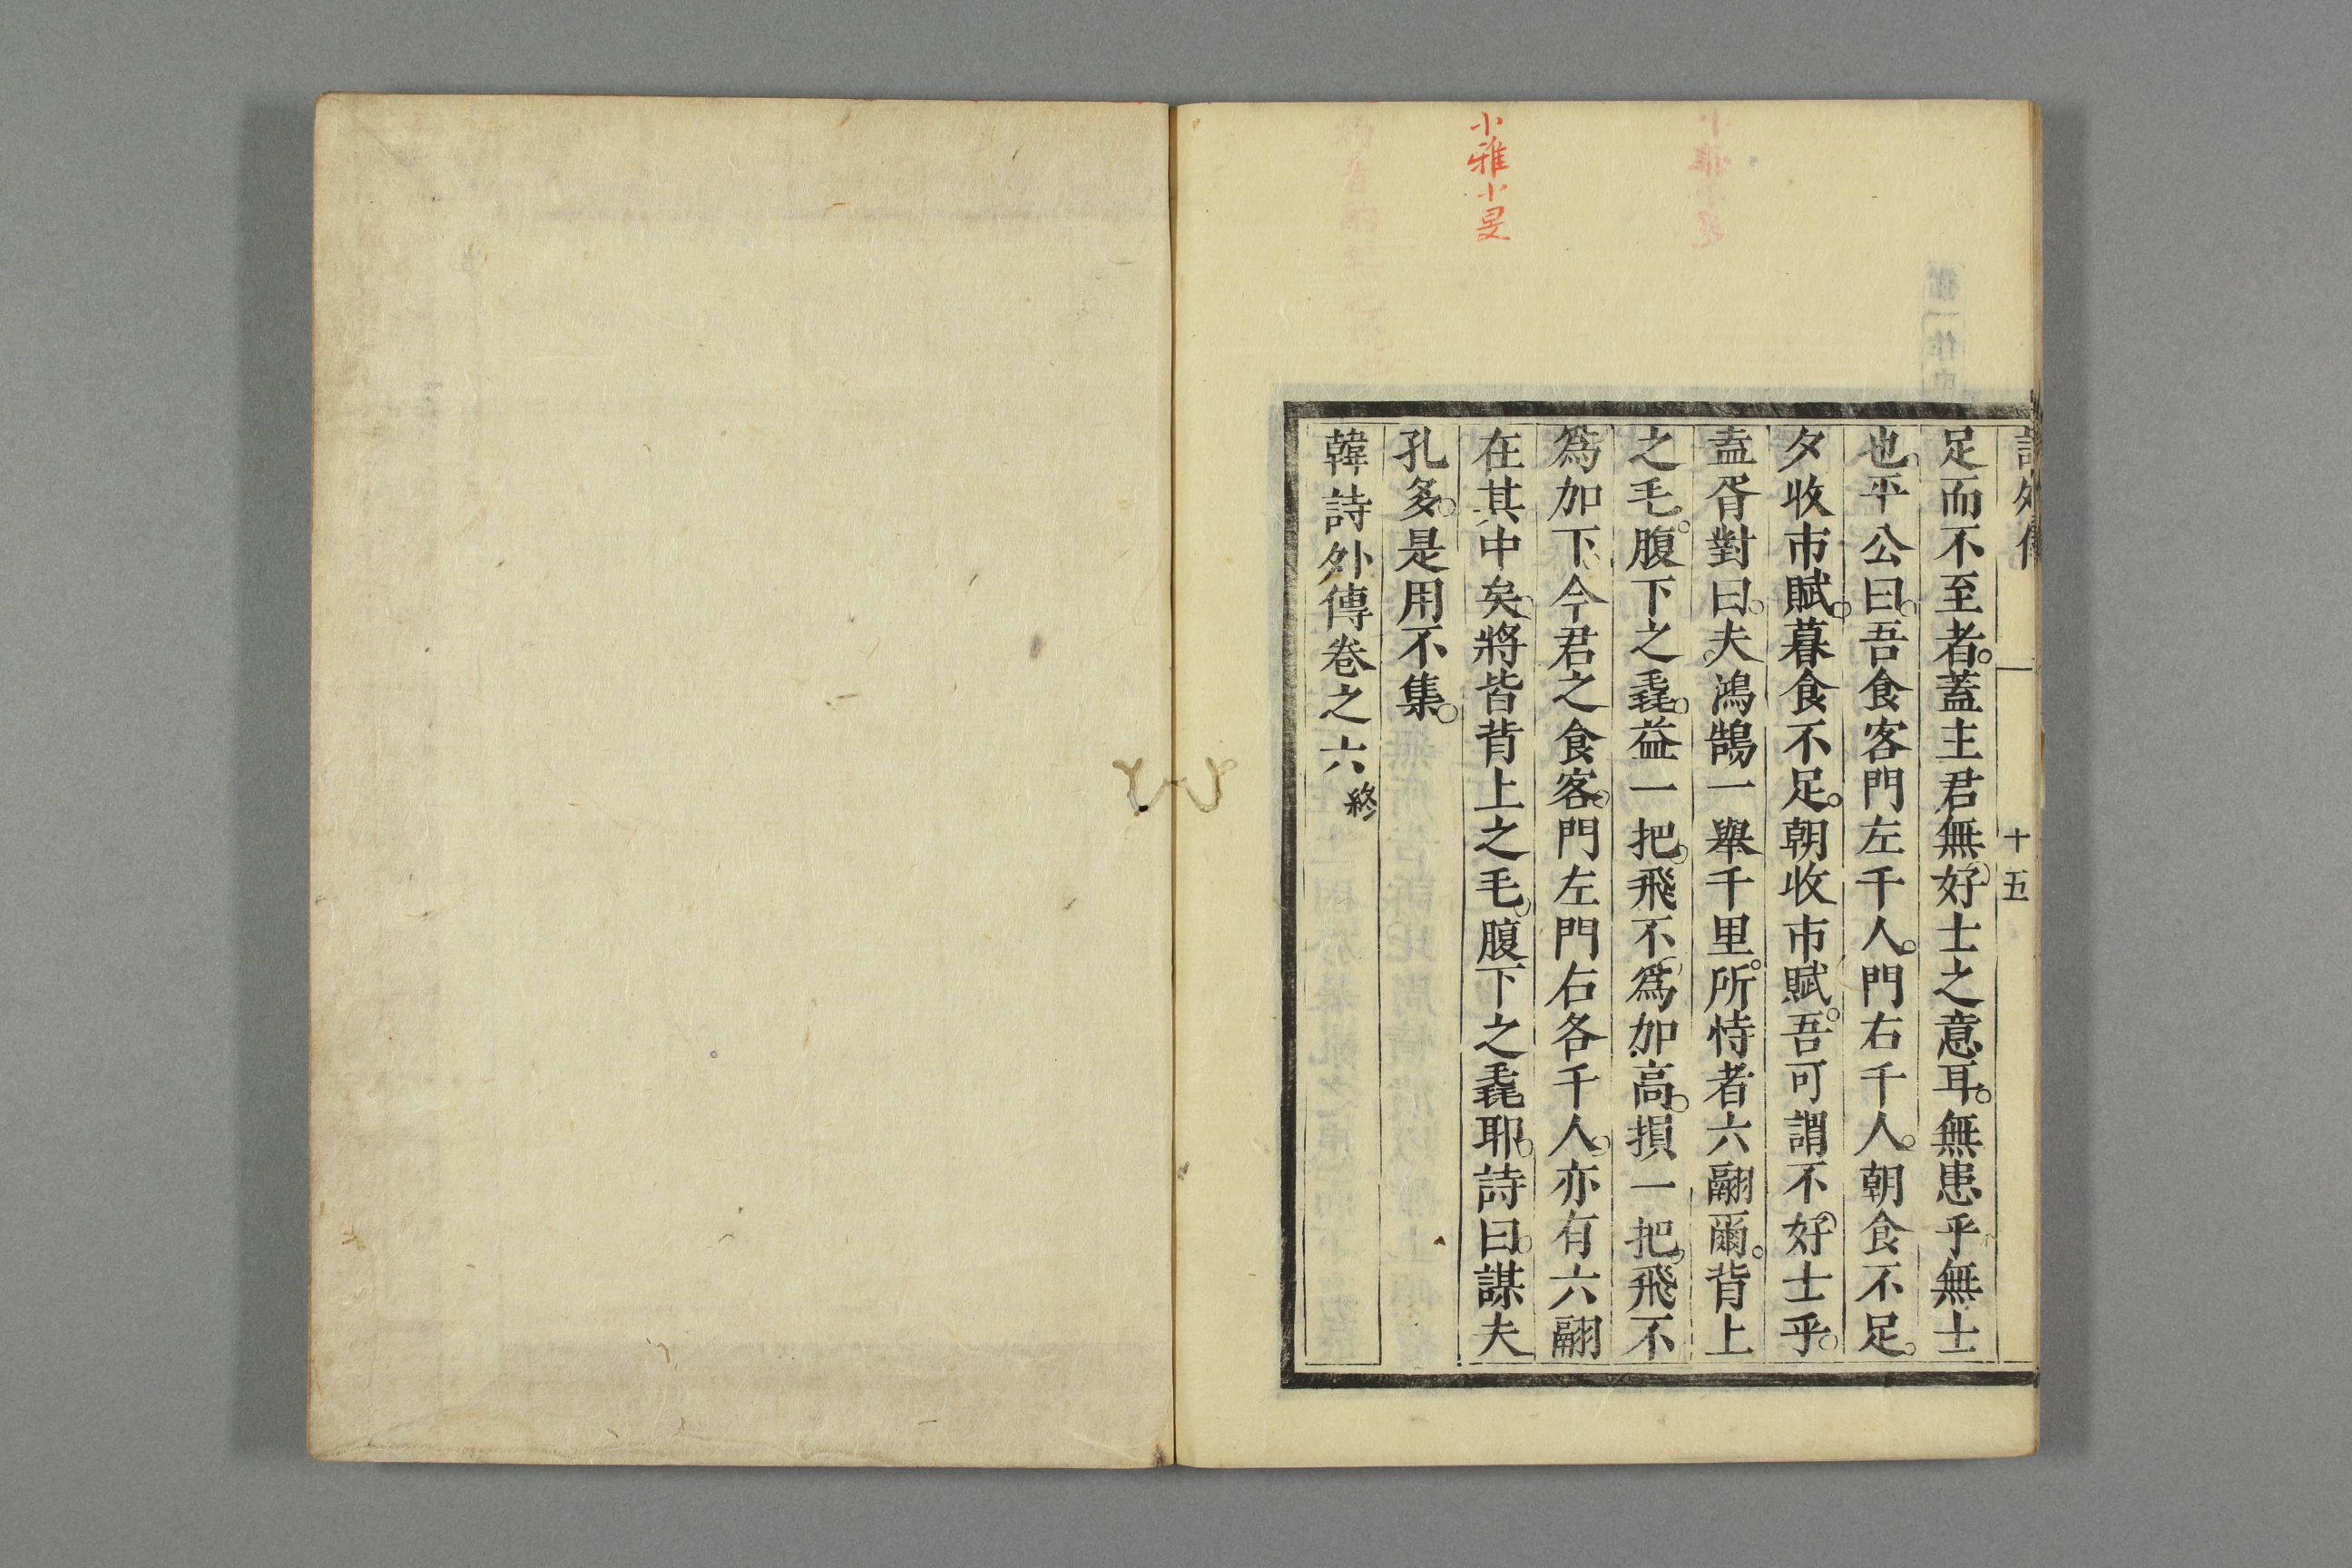 小雅小旻
詩外傳
十五
足而不至者。蓋主君無好士之意耳。無患乎無士
也。平公曰。吾食客門左千人。門右千人。朝食不足。
夕收市賦。暮食不足。朝收市賦。吾可謂不好士乎。
盍胥對曰。夫鴻鵠一舉千里。所恃者六翮爾。背上
之毛。腹下之毳。益一把。飛不爲加高。損一把。飛不
爲加下、今君之食客。門左門右各千人。亦有六翮
在其中矣。將皆背上之毛。腹下之毳耶。詩曰。謀夫
孔多。是用不集。
韓詩外傳卷之六終